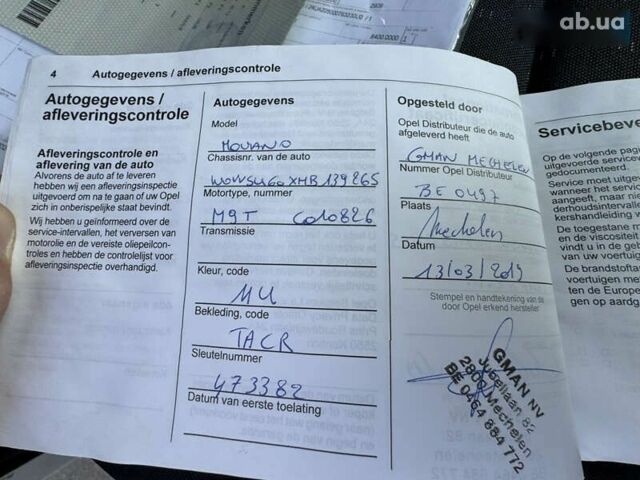 ab.ua
8400.0000
4 Autogegevens / afleveringscontrole
Autogegevens /
afleveringscontrole
Afleveringscontrole en
aflevering van de auto
Alvorens de auto af te leveren
hebben wij een afleveringsinspectie
uitgevoerd om na te gaan of uw Opel
zich in onberispelijke staat bevindt.
Wij hebben u geïnformeerd over de
service-intervallen, het verversen van
motorolie en de vereiste oliepeilcon-
troles en hebben de controlelijst voor
afleveringsinspectie overhandigd.
Autogegevens
Model
MOVANO
Chassisnr. van de auto
Motortype, nummer
M9T C010826
Transmissie
Kleur, code
MU
Bekleding, code
TACR
Sleutelnummer
473382
Datum van eerste toelating
Opgesteld door
Opel Distributeur die de auto
afgeleverd heeft
GMAN MECHELEN
Nummer Opel Distributeur
BE 0497
Plaats
Mechelen
Datum
13/03/2019
Stempel en handtekening van de
door Opel erkend hersteller
GMAN NV
2800 Mechelen
BE 0464 884 772
Servicebeve
Op de volgende pagi
uitgevoerde service
gedocumenteerd.
Service moet uitge
wanneer het servic
aangeeft, maar nie
derhoudsinterval
kershandleiding
De toegestane m
en de viscositeit
vindt u in de ge
van uw voertuig
De brandstofta
voertuigen me
ten de Europe
gen op aardg